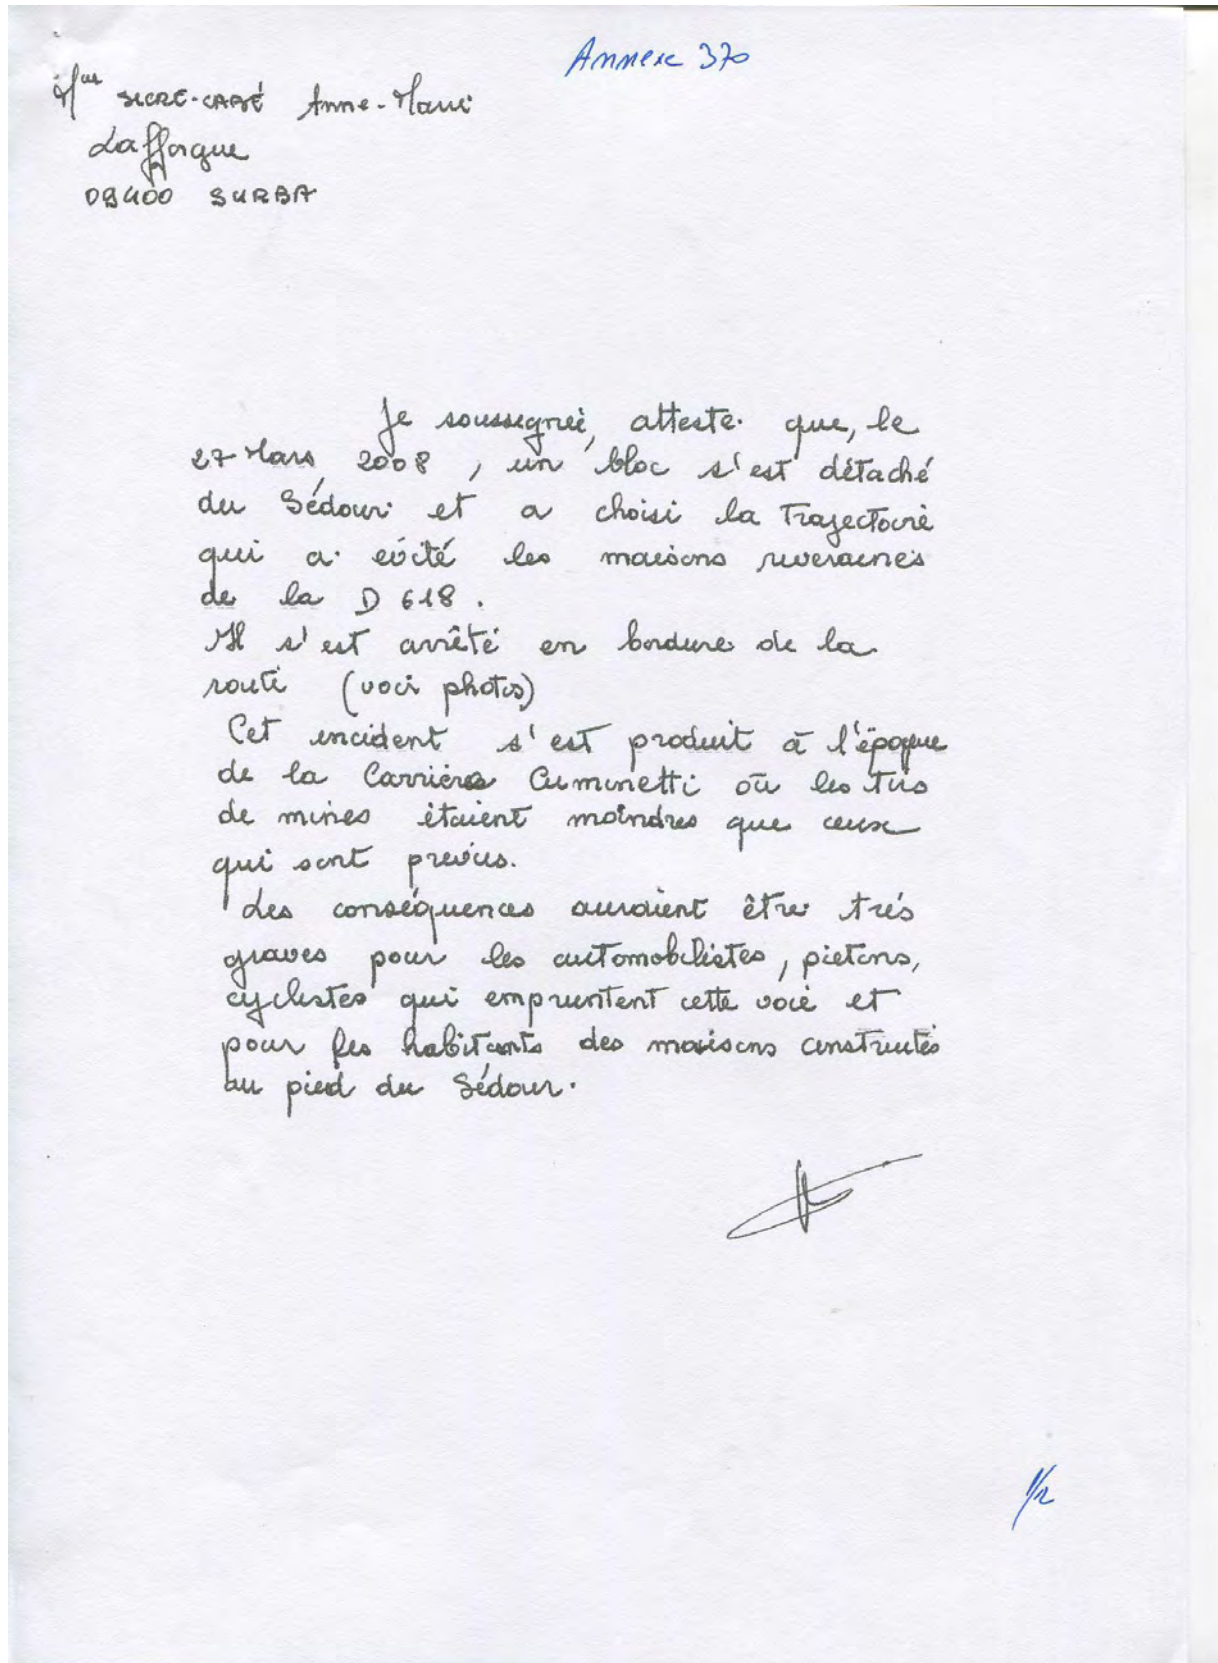 Annexe 370
Mme SICRE-CABÉ Anne-Marie
Lafforgue
09400 SURBA
Je soussignée, atteste que, le
27 Mars 2008, un bloc s'est détaché
du Sédour et a choisi la trajectoire
qui a évité les maisons riveraines
de la D 618.
Il s'est arrêté en bordure de la
route (voir photos)
Cet incident s'est produit à l'époque
de la Carrière Cuminetti où les tirs
de mines étaient moindres que ceux
qui sont prévus.
Les conséquences auraient être très
graves pour les automobilistes, piétons,
cyclistes qui empruntent cette voie et
pour les habitants des maisons construites
au pied du Sédour.
1/2